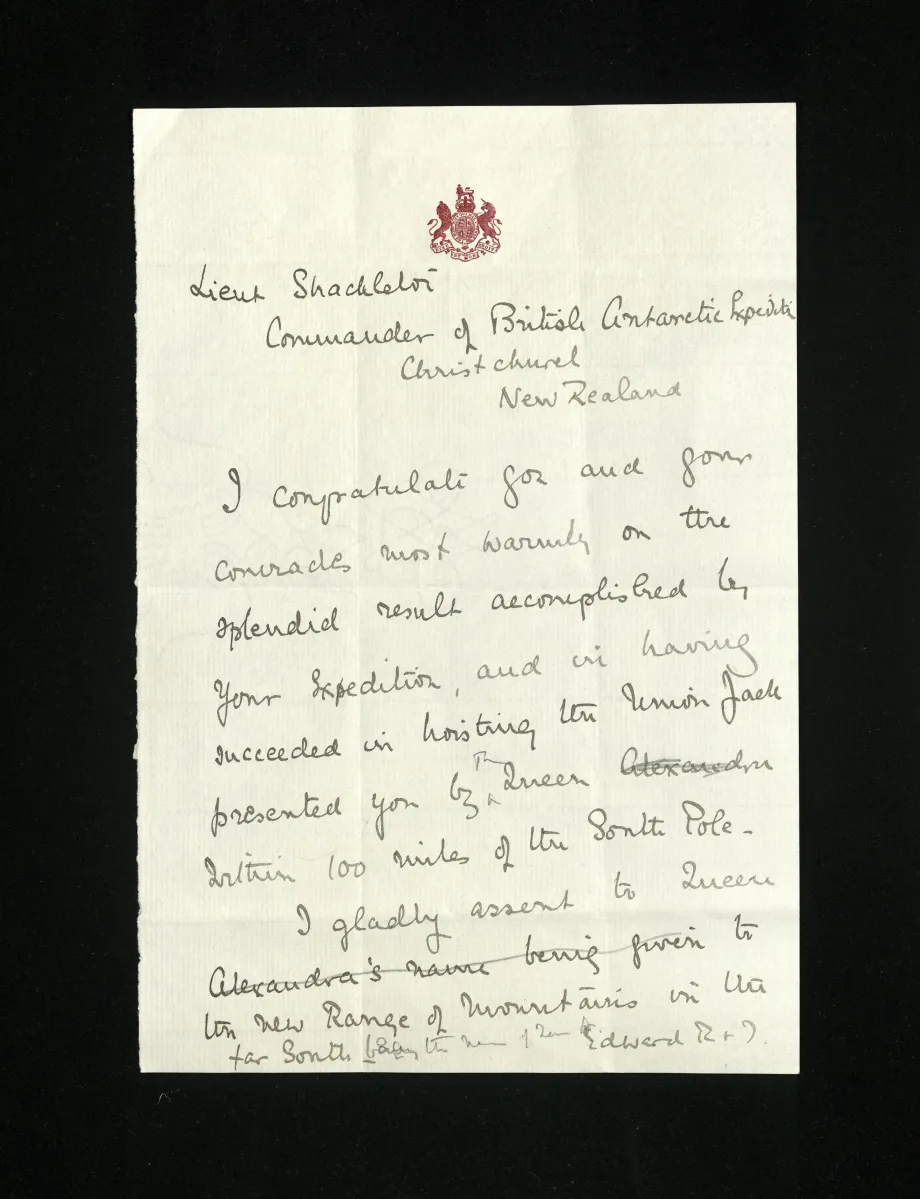 Lieut Shackleton
Commander of British Antarctic Expediti
Christchurch
New Zealand
I congratulate you and your
comrades most warmly on the
splendid result accomplished by
your Expedition, and in having
succeeded in hoisting the Union Jack
presented you by The Queen Alexandra
within 100 miles of the South Pole -
I gladly assent to Queen
Alexandra's name being given to
the new Range of Mountains in the
far South bearing the name of Edward R & I.